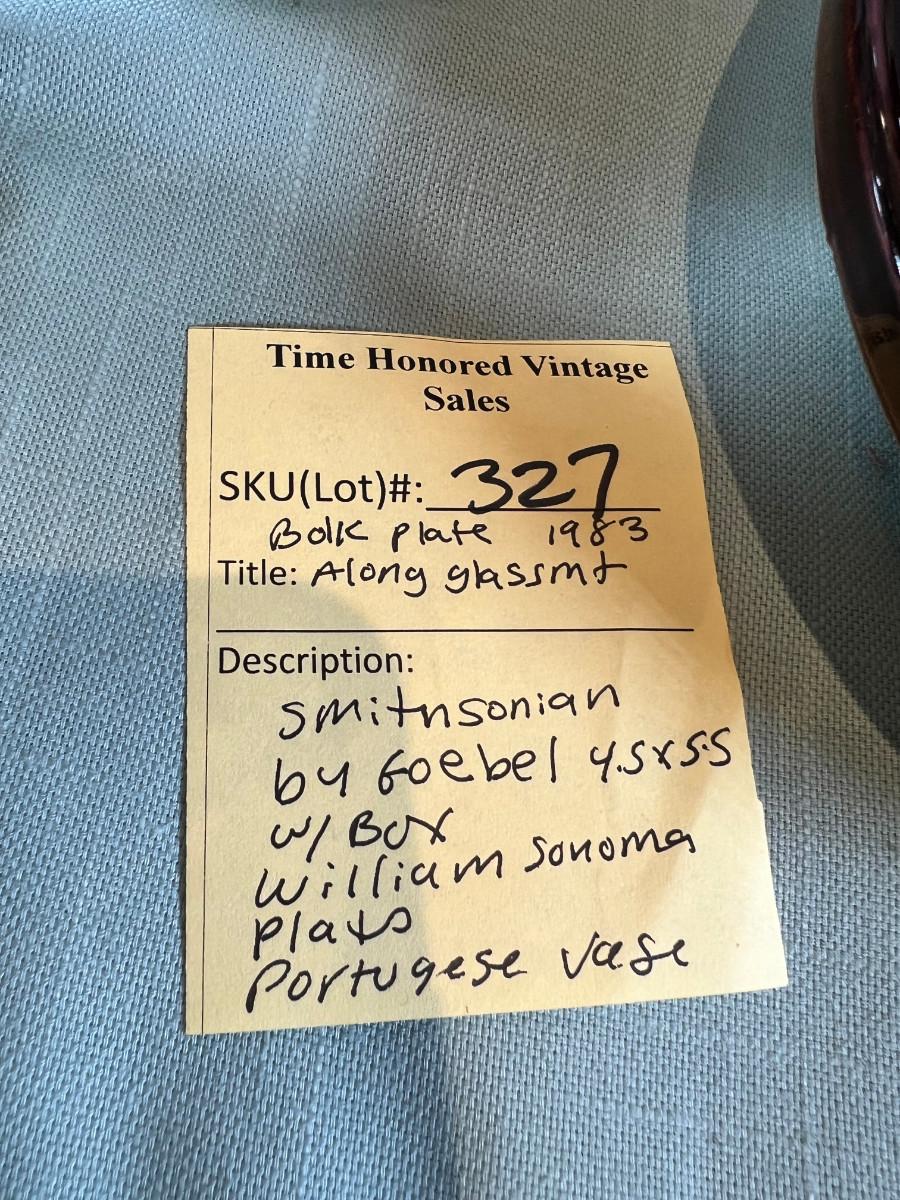 Time Honored Vintage
Sales
SKU(Lot)#: 327
Bolk plate 1983
Title: Along glassmt
Description:
smithsonian
by Goebel 4.5x5.5
w/ Box
William Sonoma
Plats
Portugese vase